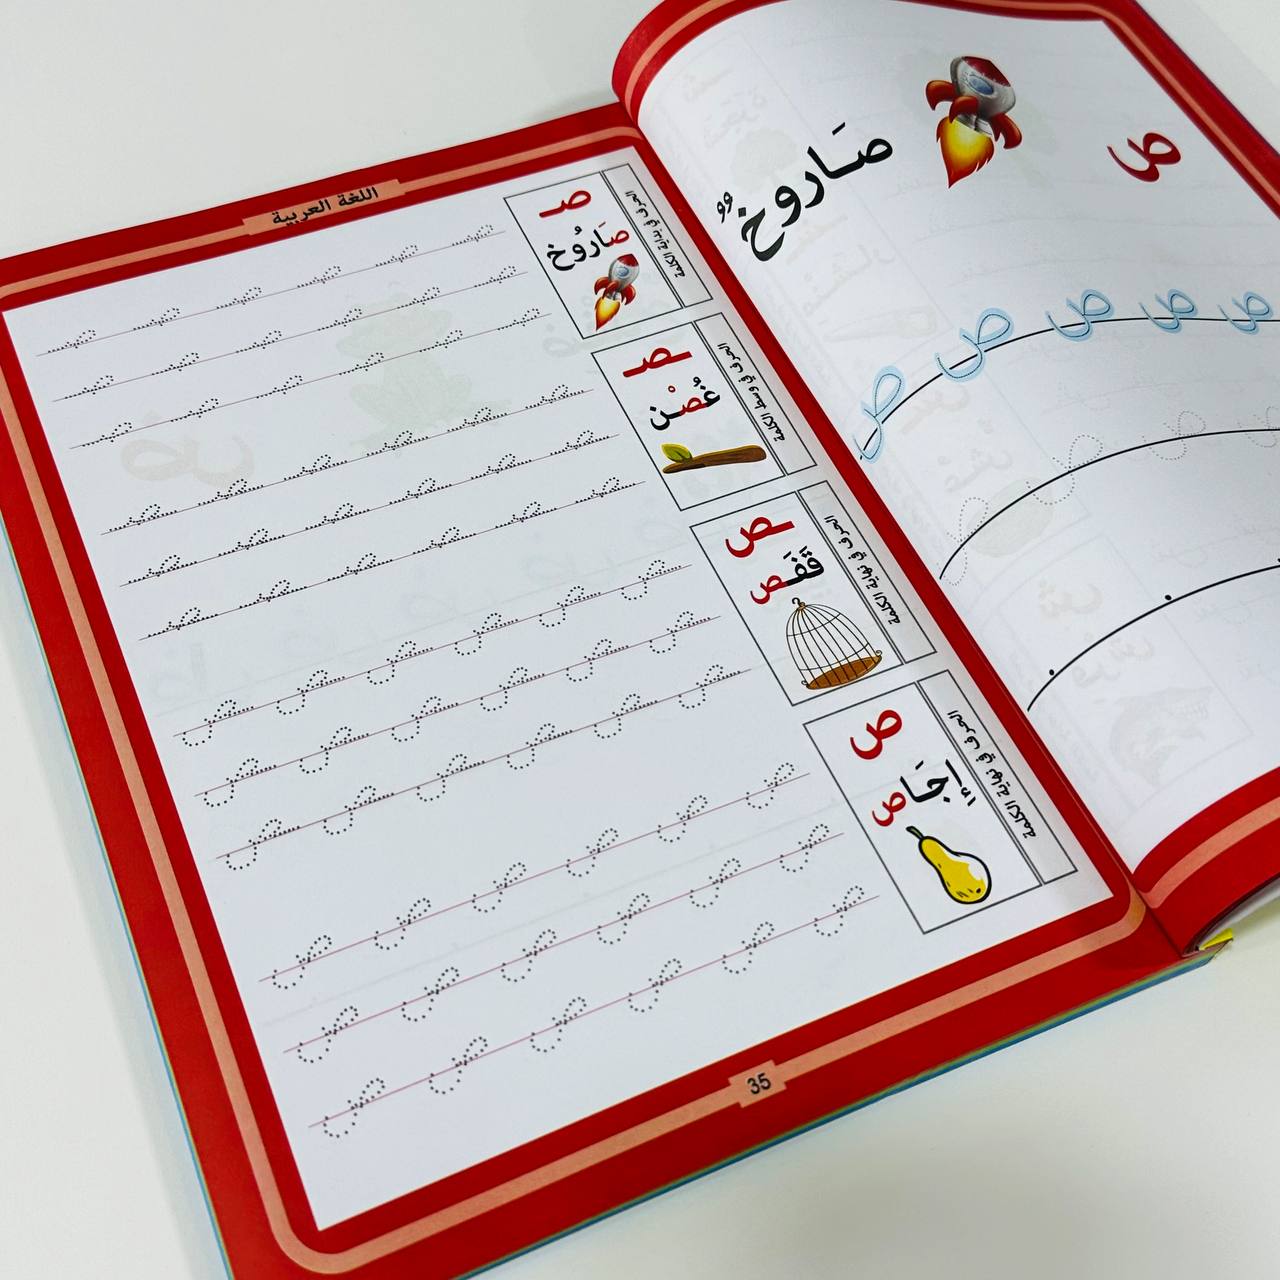 ص
صَـاروخٌ
ص ص ص ص ص
اللغة العربية
الحرف في بداية الكلمة
صـ
صَارُوُخ
الحرف في وسط الكلمة
ـصـ
غُصْـن
الحرف في نهاية الكلمة
ـص
قَفَـص
الحرف في نهاية الكلمة
ص
إجَـاص
35